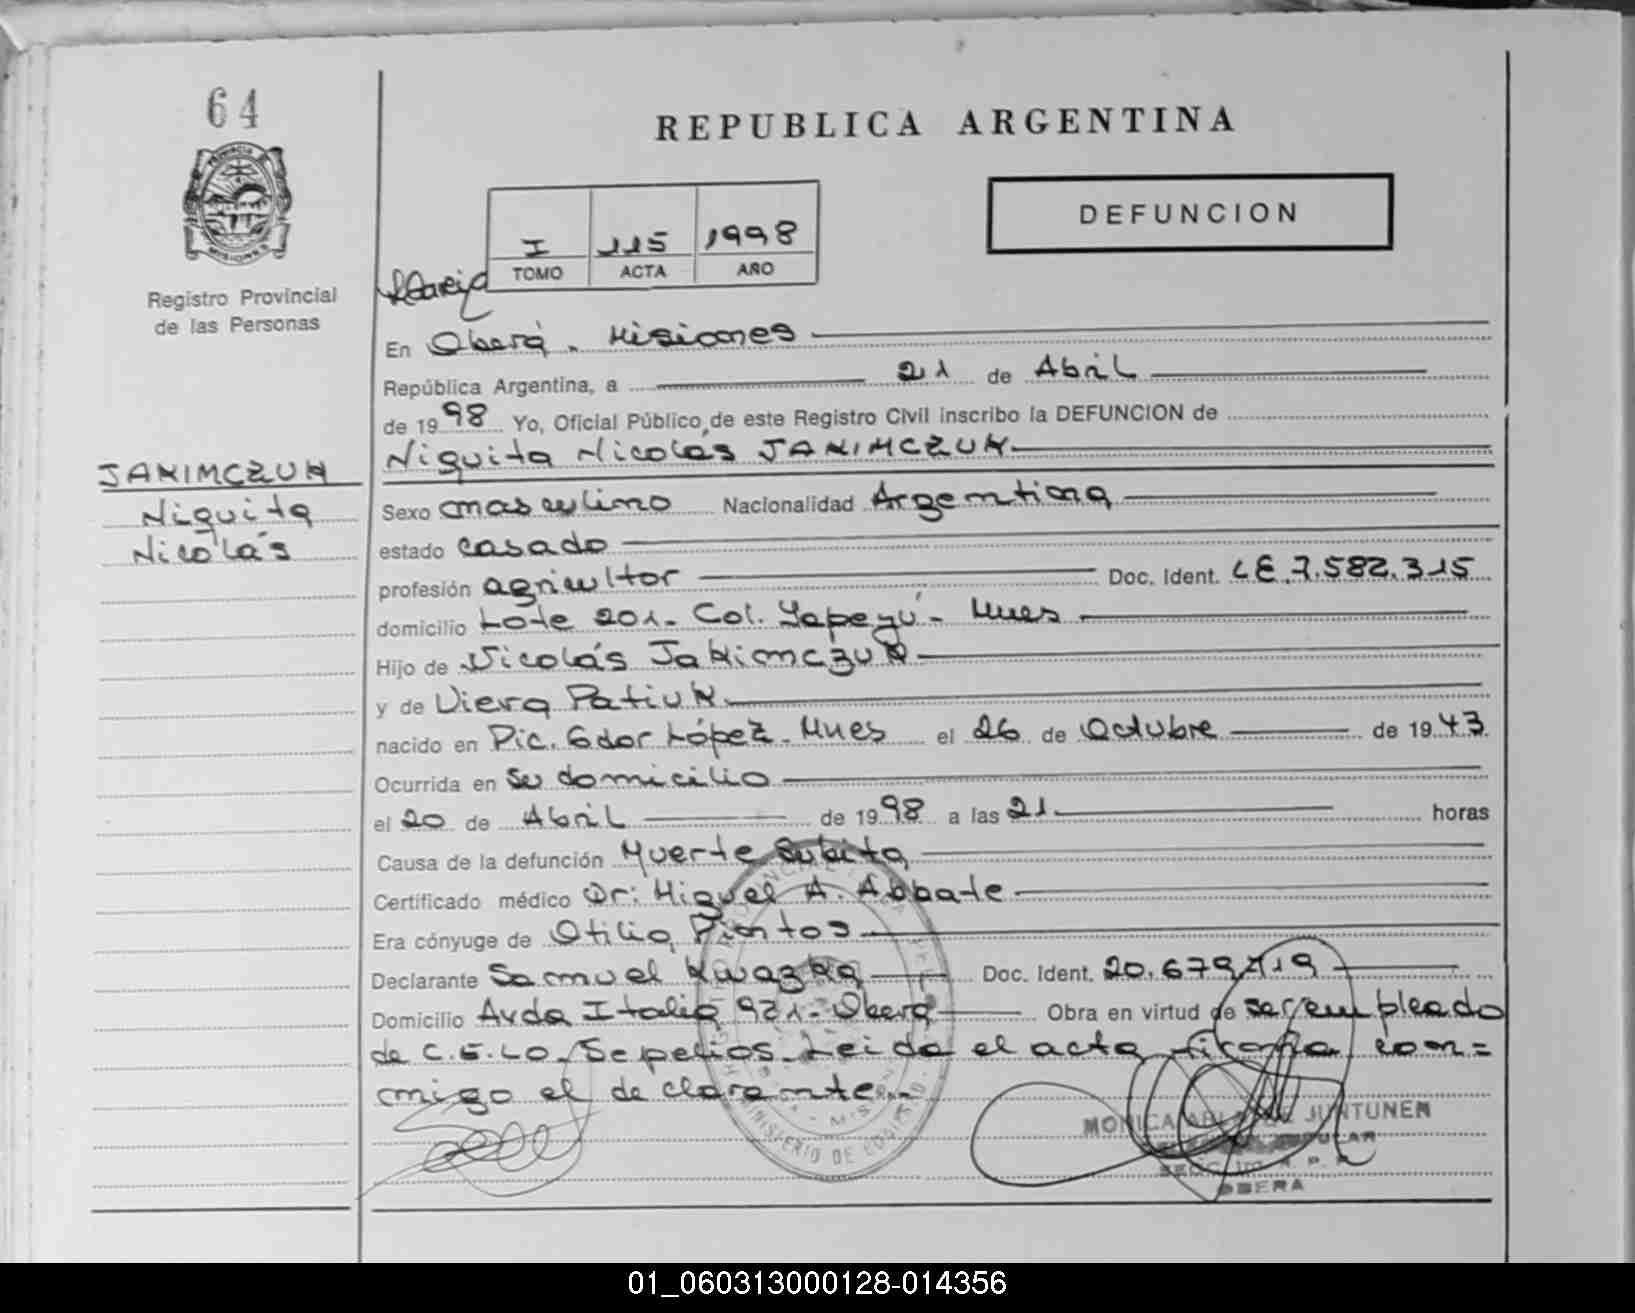 64
PROVINCIA DE
MISIONES
Registro Provincial
de las Personas
JAKIMCZUK
Niquita
Nicolás
REPUBLICA ARGENTINA
DEFUNCION
I 115 1998
TOMO ACTA AÑO
En Oberá. Misiones
República Argentina, a 21 de Abril
de 1998 Yo, Oficial Público de este Registro Civil inscribo la DEFUNCION de
Niquita Nicolás JAKIMCZUK
Sexo masculino Nacionalidad Argentina
estado casado
profesión agricultor Doc. Ident. LE.7.582.315
domicilio Lote 201- Col. Yapeyú- Mnes
Hijo de Nicolás Jakimczuk
y de Viera Patiuk
nacido en Pic. Gdor López. Mnes el 26 de Octubre de 1943
Ocurrida en su domicilio
el 20 de Abril de 1998 a las 21 horas
Causa de la defunción Muerte Subita
Certificado médico Dr: Miguel A. Abbate
Era cónyuge de Otilia Pintos
Declarante Samuel Kwazka Doc. Ident. 20.679.719
Domicilio Avda Italia 921- Oberá Obra en virtud de ser empleado
de C.E.L.O. Sepelios. Leida el acta firma con=
migo el declarante.-
MINISTERIO DE GOBIERNO
MONICA DE JUNTUNEN
OBERA
01_060313000128-014356